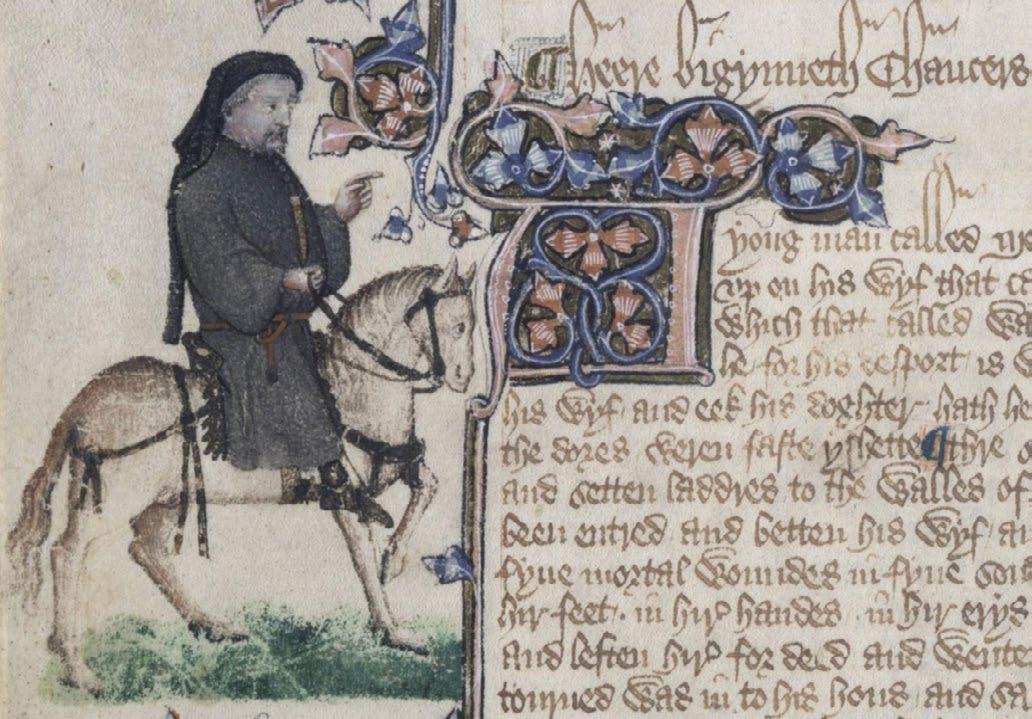 Heere bigynneth Chaucers
A yong man called
vp on his wyf that
which that called
he for his desport is
his wyf and eek his doghter hath
the dores weren faste yshette thre
and setten laddres to the walles of
been entred and betten his wyf
fyue mortal woundes in fyue
hir feet . in hir handes . in hir erys
and leften hir for deed and wente
tourned was in to his hous and